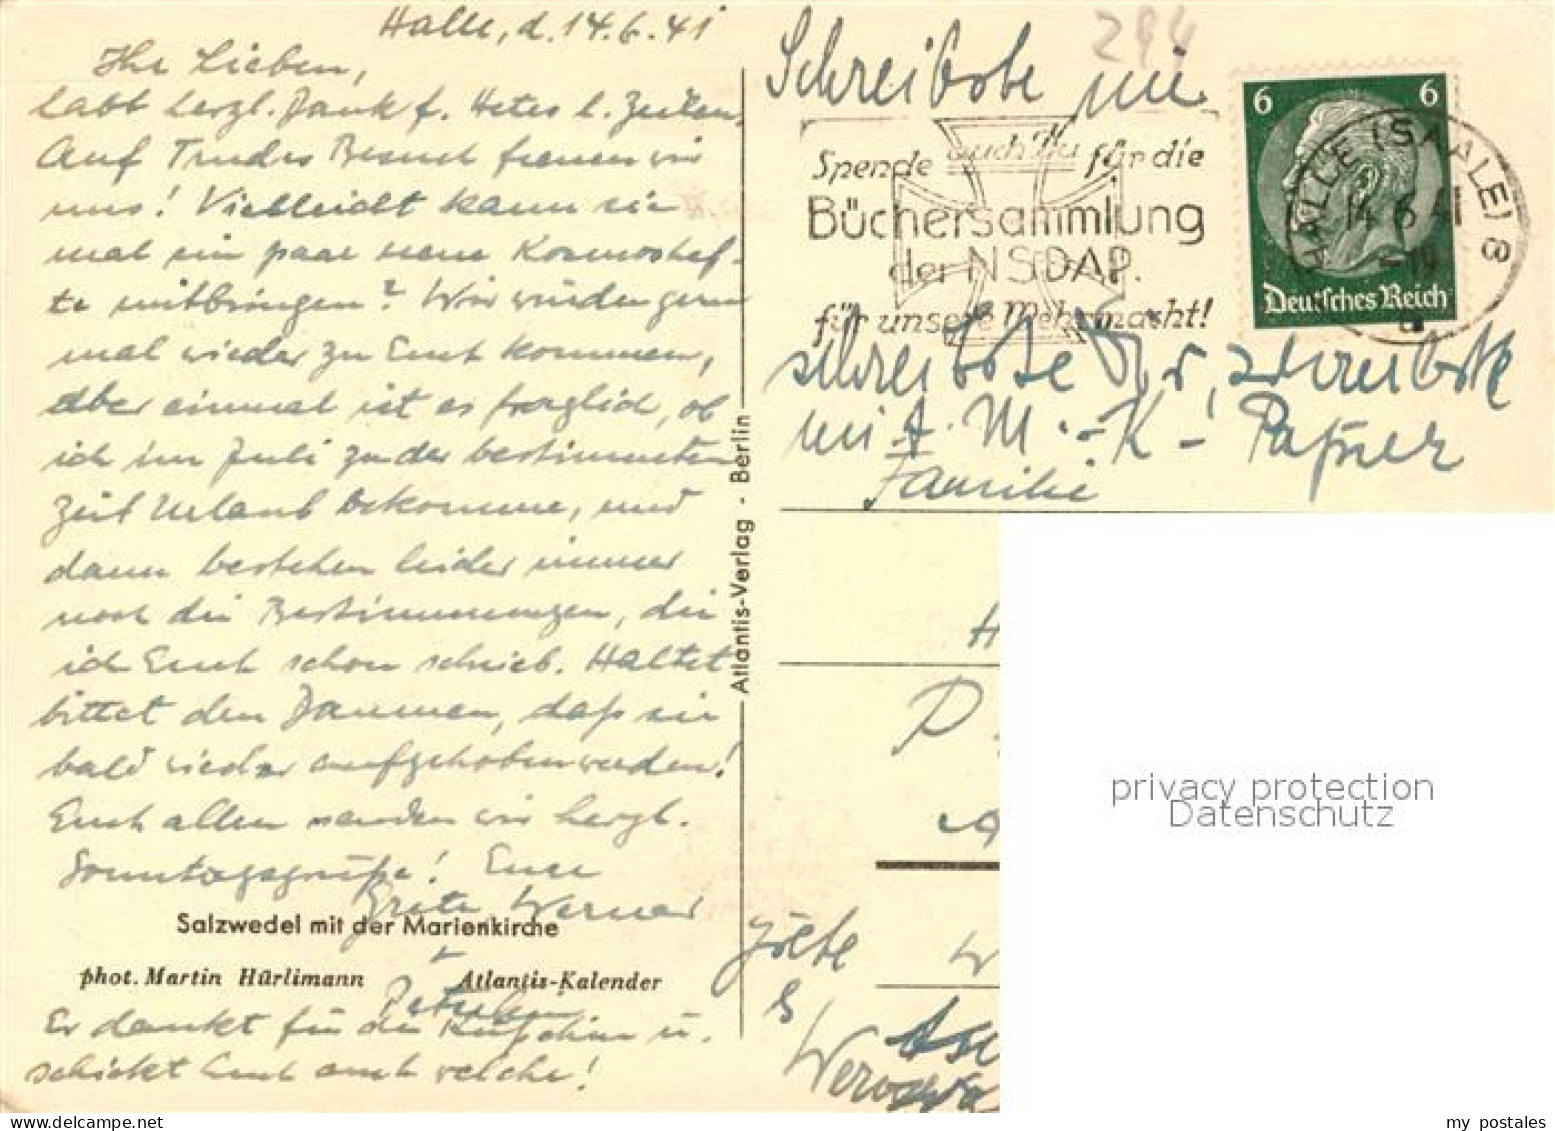 Halle, d. 14.6.41
Ihr Lieben,
habt herzl. Dank f. Hetes l. Zeilen.
Auf Trudes Besuch freuen wir
uns! Vielleicht kann sie
mal ein paar neue Kosmoshef-
te mitbringen? Wir würden gern
mal wieder zu Euch kommen,
aber einmal ist es fraglich, ob
ich im Juli zu der bestimmten
Zeit Urlaub bekomme, und
dann bestehen leider immer
noch die Bestimmungen, die
ich Euch schon schrieb. Haltet
bittet den Daumen, daß sie
bald wieder aufgehoben werden!
Euch allen senden wir herzl.
Sonntagsgrüße! Eure
Grete Werner
+
Salzwedel mit der Marienkirche
phot. Martin Hürlimann Atlantis-Kalender
Er dankt für die Küßchen u.
schickt Euch auch welche!
Atlantis-Verlag - Berlin
294
Schreibste mir
Spende auch Du für die
Büchersammlung
der NSDAP.
für unsere Wehrmacht!
6 6
Deutsches Reich
HALLE (SAALE) 8
14.6.41
-19
schreibste Dir, schreibste
mit M.-K-
Familie
H
D
W
Werner
privacy protection
Datenschutz
my postales